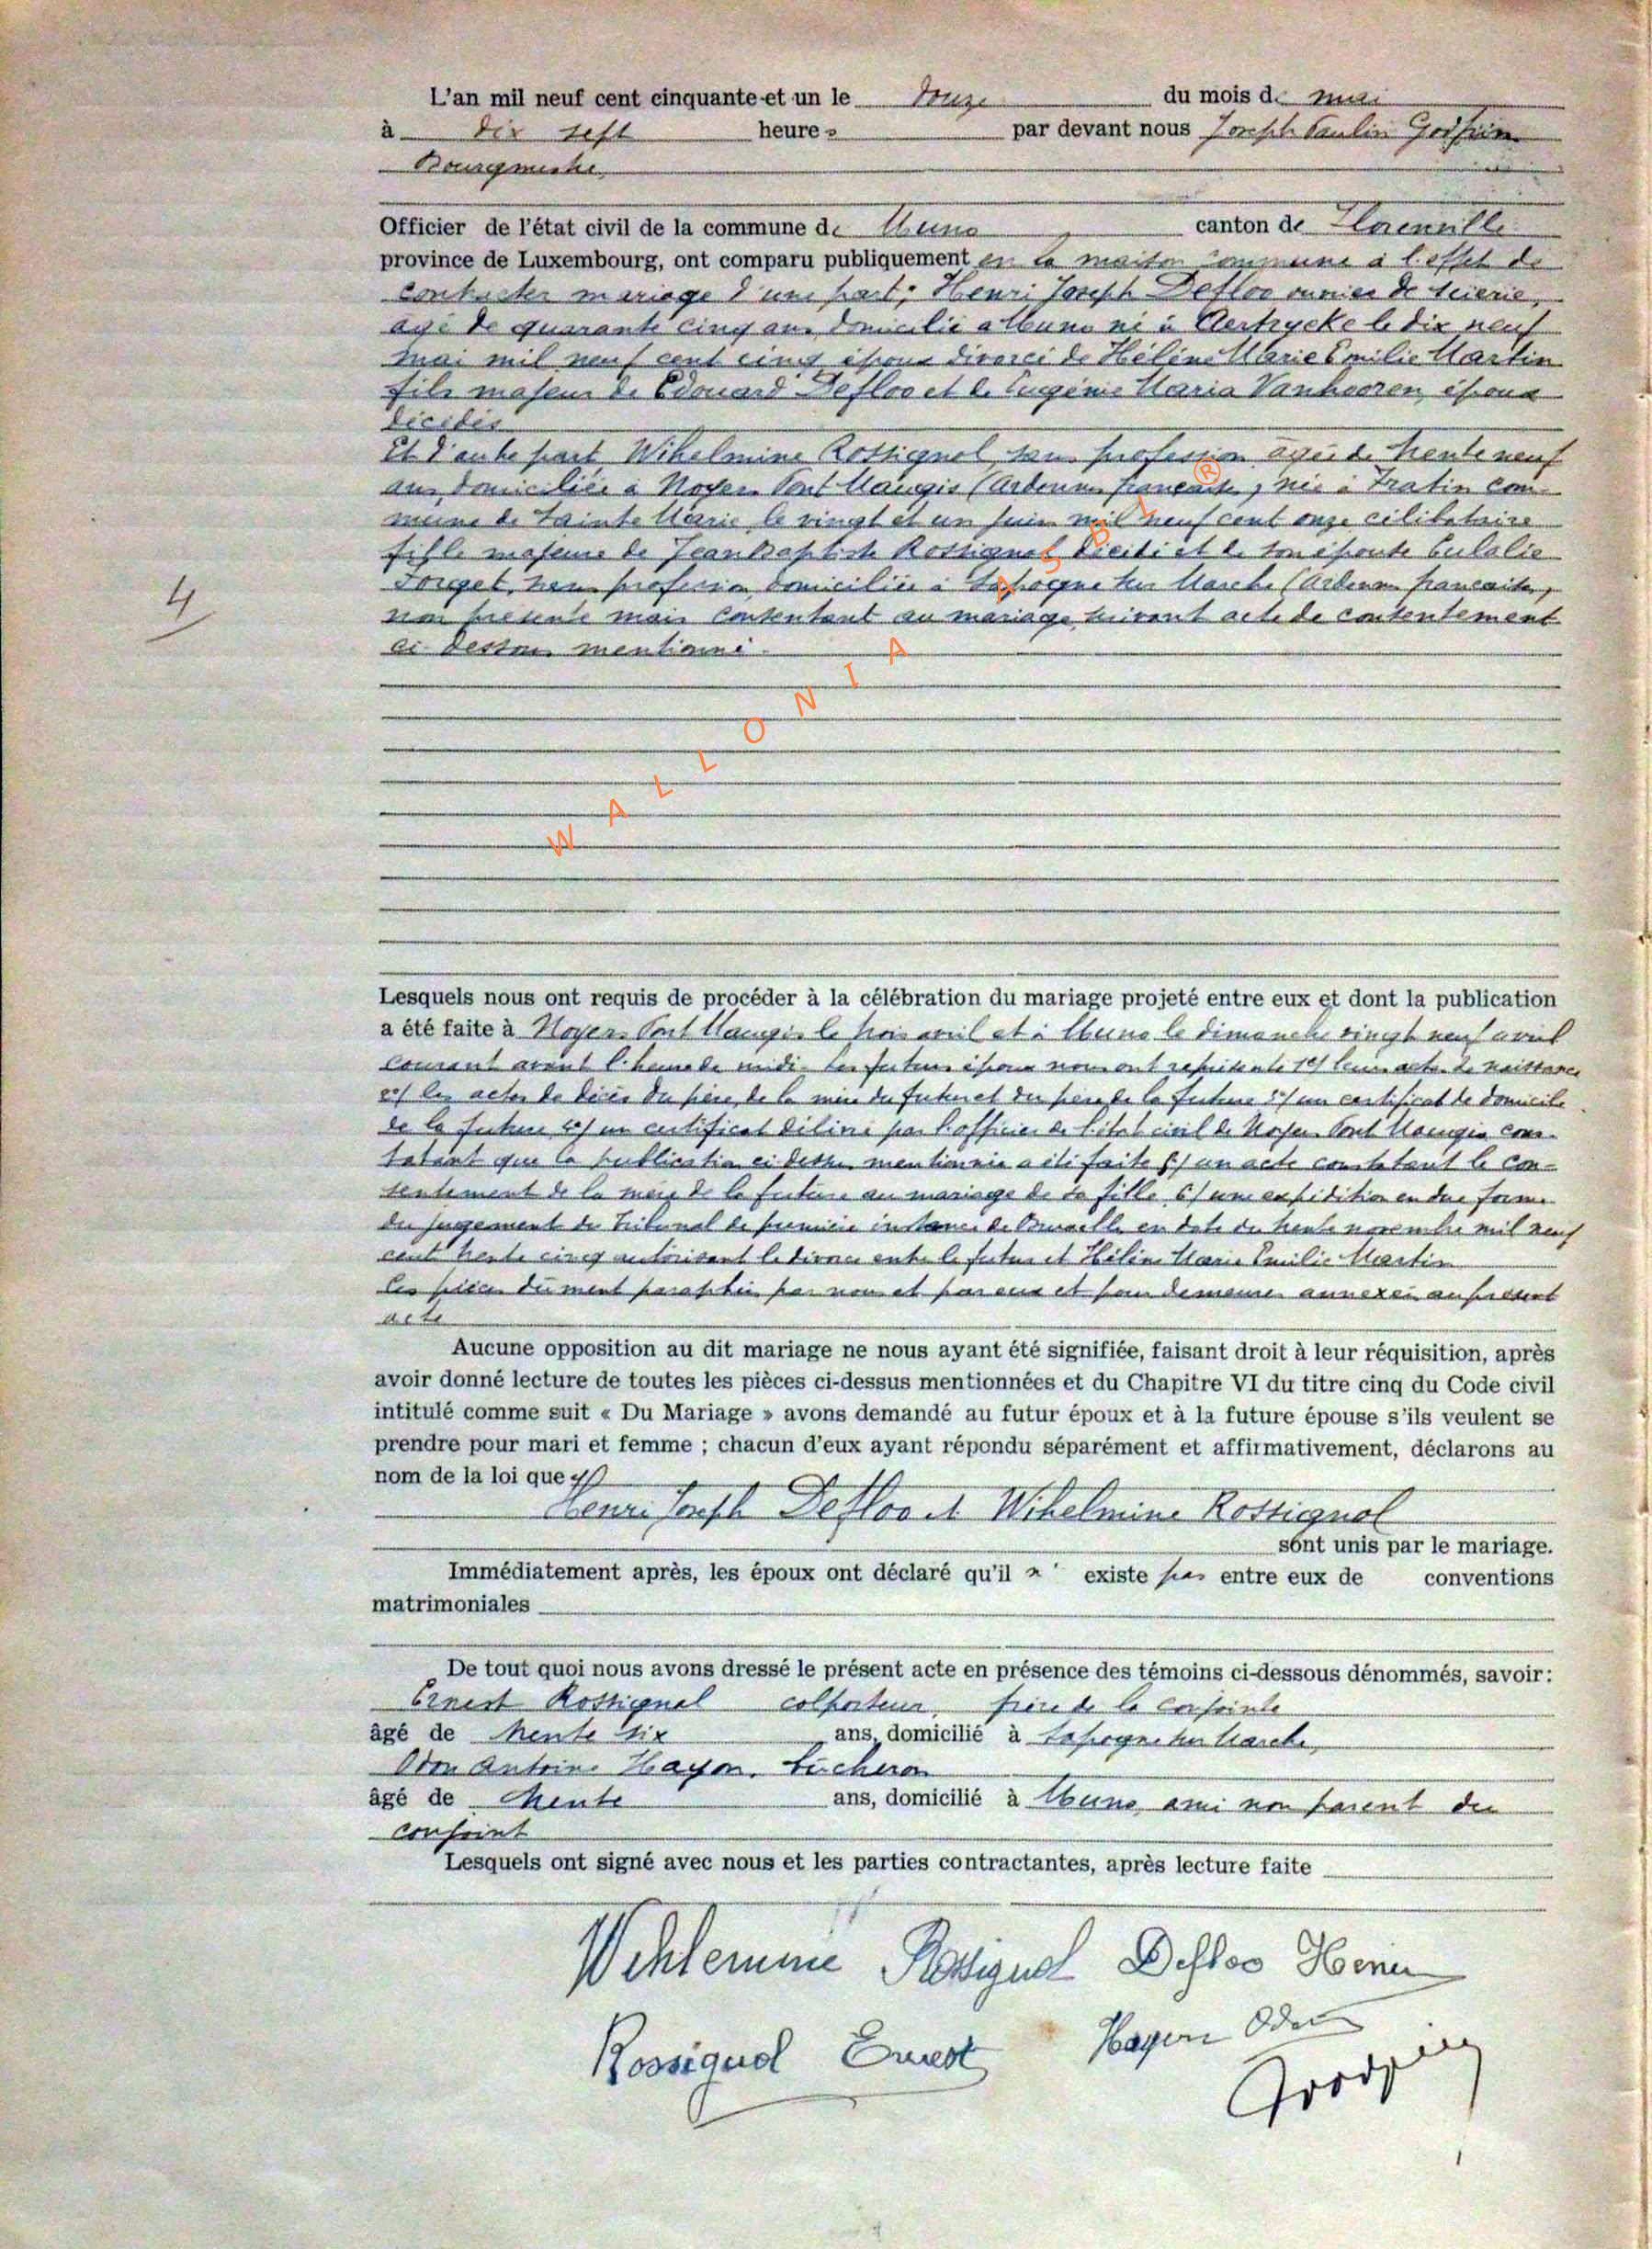 L'an mil neuf cent cinquante-et un le douze du mois de mai
à dix sept heures par devant nous Joseph Paulin Godfrin
Bourgmestre
Officier de l'état civil de la commune de Muno canton de Florenville
province de Luxembourg, ont comparu publiquement en la maison commune à l'effet de
contracter mariage d'une part, Henri Joseph Defloo ouvrier de scierie,
agé de quarante cinq ans domicilié a Muno né à Aertrycke le dix neuf
mai mil neuf cent cinq époux divorcé de Hélène Marie Emilie Martin
fils majeur de Edouard Defloo et de Eugénie Maria Vanhooren, époux
décédés
Et d'autre part Wihelmine Rossignol, sans profession agée de trente neuf
ans domiciliée à Noyers Pont Maugis (Ardennes françaises) née à Fratin com-
mune de Sainte Marie le vingt et un juin mil neuf cent onze célibataire
fille majeure de Jean Baptiste Rossignol décédé et de son épouse Eulalie
Forget, sans profession domiciliée à Sapogne sur Marche (Ardennes françaises,
non présente mais consentant au mariage suivant acte de consentement
ci dessous mentionné
4
W A L L O N I A A S B L ®
Lesquels nous ont requis de procéder à la célébration du mariage projeté entre eux et dont la publication
a été faite à Noyers Pont Maugis le trois avril et à Muno le dimanche vingt neuf avril
courant avant l'heure de midi. Les futurs époux nous ont représenté 1°/ leurs actes de naissance
2°/ les actes de décès du père, de la mère du futur et du père de la future 3°/ un certificat de domicile
de la future 4°/ un certificat délivré par l'officier de l'état civil de Noyers Pont Maugis cons-
tatant que la publication ci dessus mentionnée a été faite 5°/ un acte constatant le con-
sentement de la mère de la future au mariage de sa fille 6°/ une expédition en due forme
du jugement du Tribunal de première instance de Bruxelles en date du trente novembre mil neuf
cent trente cinq autorisant le divorce entre le futur et Hélène Marie Emilie Martin
Les pièces dûment paraphées par nous et par eux et pour demeurer annexées au présent
acte
Aucune opposition au dit mariage ne nous ayant été signifiée, faisant droit à leur réquisition, après
avoir donné lecture de toutes les pièces ci-dessus mentionnées et du Chapitre VI du titre cinq du Code civil
intitulé comme suit « Du Mariage » avons demandé au futur époux et à la future épouse s'ils veulent se
prendre pour mari et femme ; chacun d'eux ayant répondu séparément et affirmativement, déclarons au
nom de la loi que
Henri Joseph Defloo et Wihelmine Rossignol
sont unis par le mariage.
Immédiatement après, les époux ont déclaré qu'il n' existe pas entre eux de conventions
matrimoniales
De tout quoi nous avons dressé le présent acte en présence des témoins ci-dessous dénommés, savoir :
Ernest Rossignol colporteur, frère de la conjointe
âgé de trente six ans, domicilié à Sapogne sur Marche,
Odon Antoine Hayon, bûcheron
âgé de trente ans, domicilié à Muno, ami non parent du
conjoint
Lesquels ont signé avec nous et les parties contractantes, après lecture faite
Wihlemine Rossignol Defloo Henri
Rossignol Ernest Hayon Odon
Godfrin